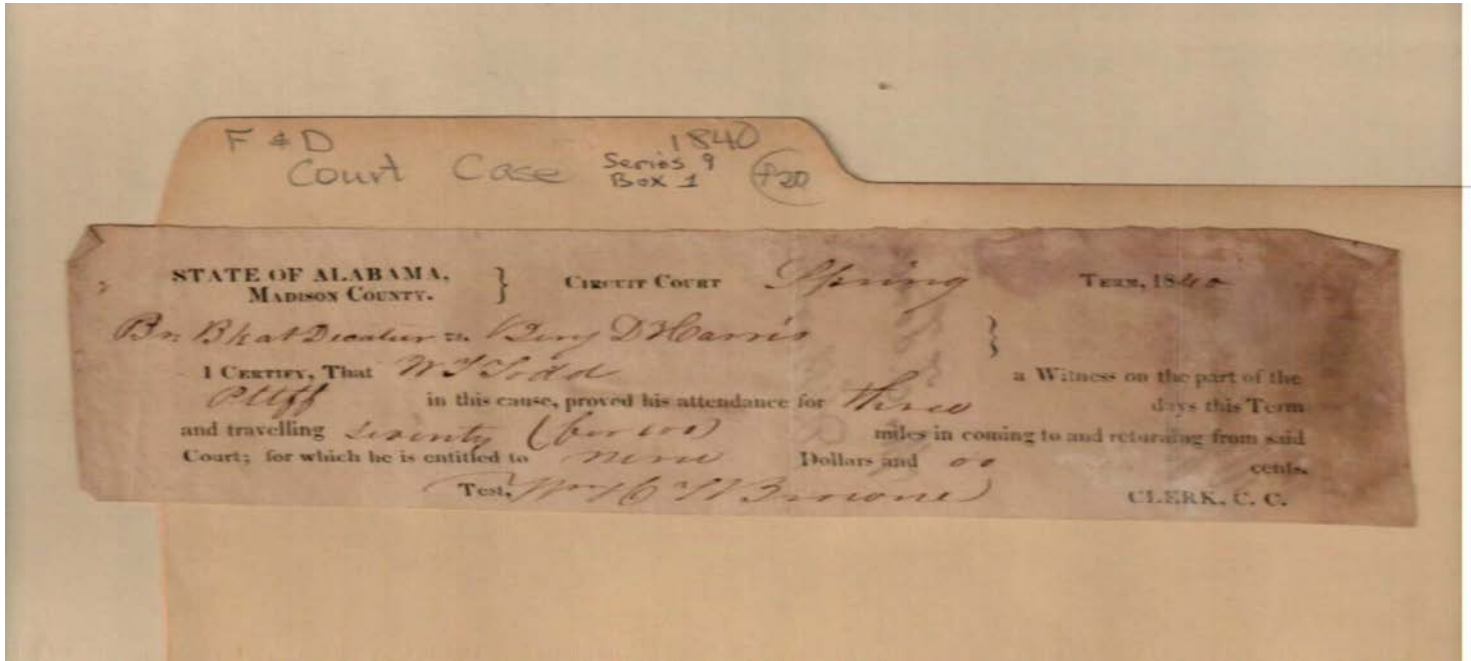 F & D 1840
Court Case Series 9
Box 1 P20
STATE OF ALABAMA, } CIRCUIT COURT Spring TERM, 1840
MADISON COUNTY.
Br. Bk at Decatur vs. Benj D Harris }
I CERTIFY, That W T Todd a Witness on the part of the
Pltff in this cause, proved his attendance for three days this Term
and travelling seventy miles in coming to and returning from said
Court; for which he is entitled to nine Dollars and 00 cents.
Test, Wm H T Browne CLERK, C. C.